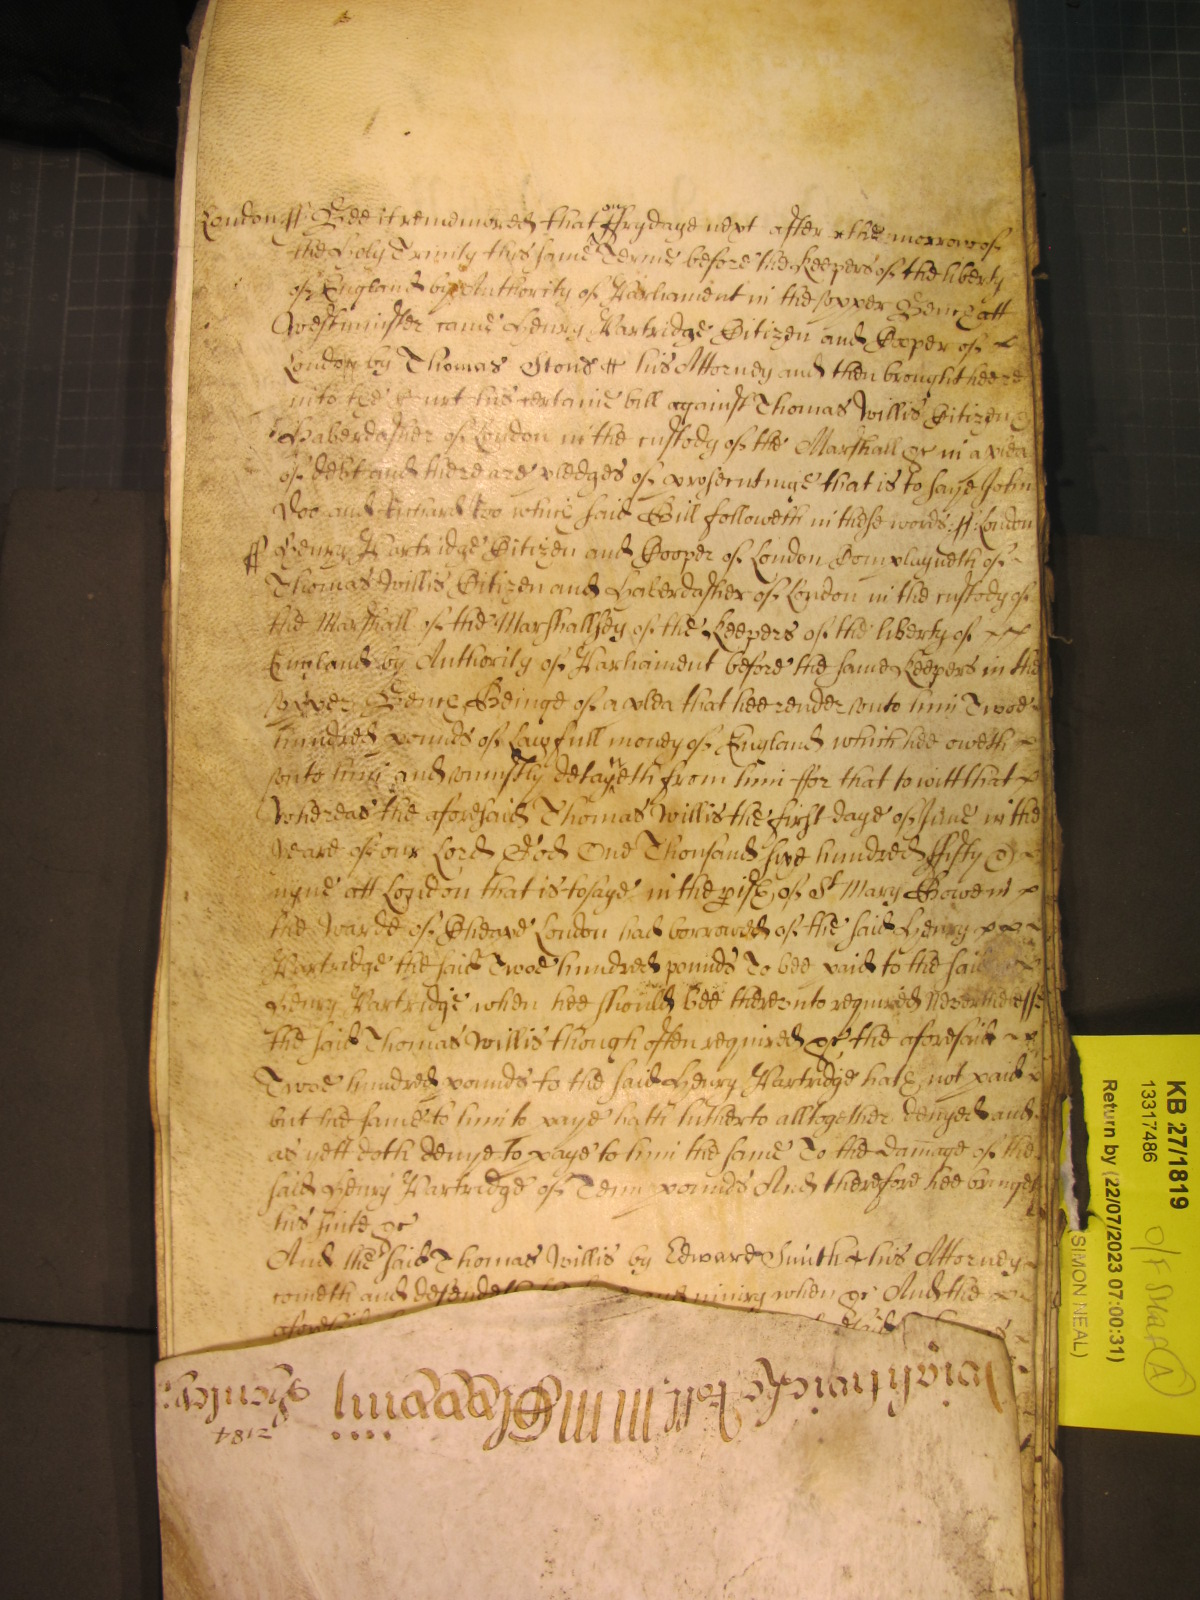 London ss Bee it remembred that on ffrydaye next after the morrow of
the Holy Trinity this same Terme before the Keepers of the liberty
of England by Authority of Parliament in the vpper Bench att
Westminster came Henry Partridge Citizen and Cooper of
London by Thomas Stone his Attorney and then brought heere
into the Court this certaine bill against Thomas Willis Citizen &
Haberdasher of London in the custody of the Marshall &c in a plea
of debt and there are pledges of prosecutinge that is to saye John
Doo and Richard Roo which said Bill followeth in these words ss London
ss Henry Partridge Citizen and Cooper of London Complayneth of
Thomas Willis Citizen and Haberdasher of London in the custody of
the Marshall of the Marshallsey of the Keepers of the liberty of
England by Authority of Parliament before the same Keepers in the
vpper Bench Beinge of a plea that hee render vnto him Twoe
hundred pounds of lawfull money of England which hee oweth
vnto him and vniustly detayneth from him ffor that to witt that
Whereas the aforesaid Thomas Willis the first daye of June in the
yeare of our Lord God One Thousand sixe hundred ffifty &
nyne att London that is to saye in the parish of St Mary Bowe in
the Warde of Cheape London had borrowed of the said Henry
Partridge the said Twoe hundred pounds To bee paid to the said
Henry Partridge when hee should bee therevnto required Neverthelesse
the said Thomas Willis though often required &c the aforesaid
Twoe hundred pounds to the said Henry Partridge hath not paid
but the same to him to paye hath hitherto alltogether denyed and
as yett doth denye To paye to him the same To the damage of the
said Henry Partridge of Tenn pounds And therefore hee bringeth
his suite &c
And the said Thomas Willis by Edward Smith his Attorney
cometh and defendeth iniury when &c And the
aforesaid
2184
KB 27/1819
13317486
Return by (22/07/2023 07:00:31)
(SIMON NEAL)
A